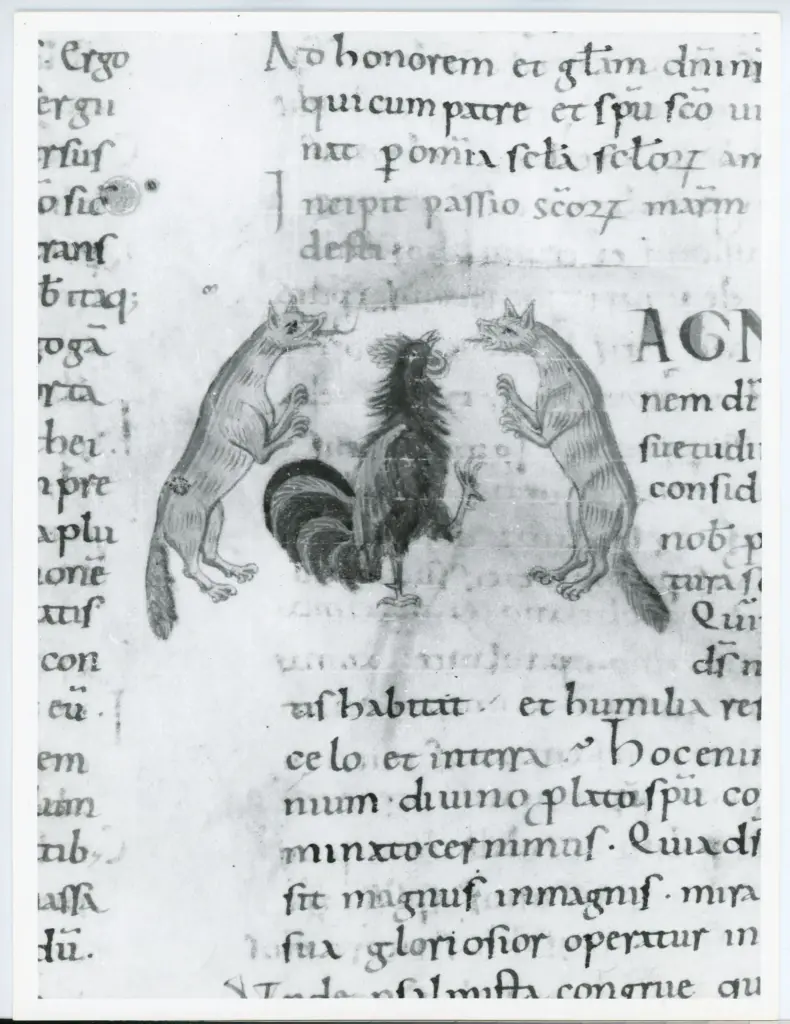 . Ergo
ergu
rsus
o sic
rans
b itaq;
goga
rta
bei
npre
aplu
ione
atis
con
eu .
em
tib
assa
du.
Ad honorem et głam dnini
qui cum patre et spu sco ui
nat p omia scła scłoꝝ am
Incipit passio scoꝝ marm
desti
AGN
nem di
suetudi
consid
nob p
tura s
Qui
ds n
tis habitat . et humilia res
celo et in terra Hoc enim
nium . diuino plato spu co
minato cernimus . Quia ds
sit magnus in magnis . mira
sua gloriosior operatur in
psalmista congrue qu